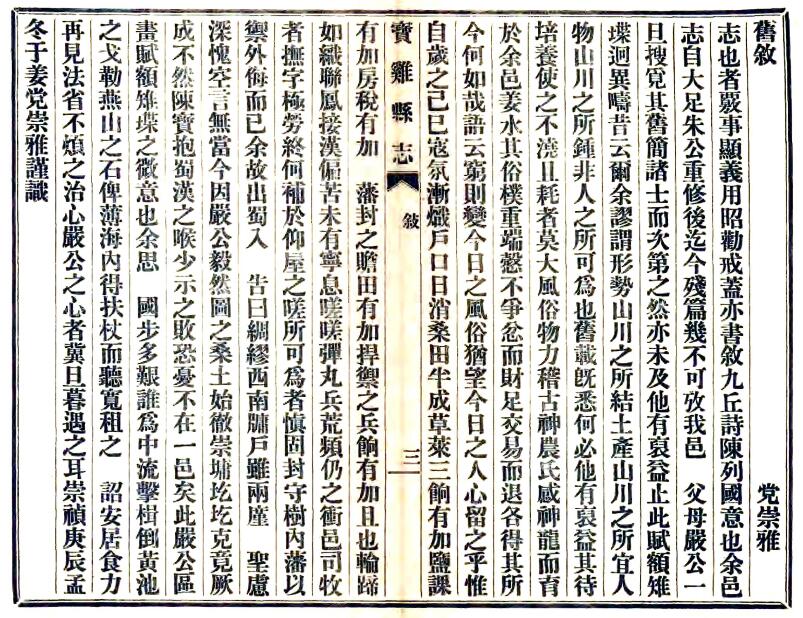 舊敘
党崇雅
志也者覈事顯義用昭勸戒蓋亦書敘九丘詩陳列國意也余邑
志自大足朱公重修後迄今殘篇幾不可攷我邑 父母嚴公一
旦搜覓其舊簡諸士而次第之然亦未及他有裒益止此賦額雉
堞迴異疇昔云爾余謬謂形勢山川之所結土產山川之所宜人
物山川之所鍾非人之所可爲也舊載旣悉何必他有裒益其待
培養使之不澆且耗者莫大風俗物力稽古神農氏感神龍而育
於余邑姜水其俗樸重端慤不爭忿而財足交易而退各得其所
今何如哉語云窮則變今日之風俗猶望今日之人心留之乎惟
自歲之己巳寇氛漸熾戶口日消桑田半成草萊三餉有加鹽課
寶雞縣志
敘
三
有加房稅有加 藩封之贍田有加捍禦之兵餉有加且也輪蹄
如織聯鳳接漢偏苦未有寧息嗟嗟彈丸兵荒頻仍之衝邑司牧
者撫字極勞終何補於仰屋之嗟所可爲者愼固封守樹內藩以
禦外侮而已余故出蜀入 告曰綢繆西南牖戶雖兩廑 聖慮
深愧空言無當今因嚴公毅然圖之桑土始徹崇墉圪圪克竟厥
成不然陳寶抱蜀漢之喉少示之敗恐憂不在一邑矣此嚴公區
畫賦額雉堞之微意也余思 國步多艱誰爲中流擊楫倒黃池
之戈勒燕山之石俾薄海內得扶杖而聽寬租之 詔安居食力
再見法省不煩之治心嚴公之心者冀旦暮遇之耳崇禎庚辰孟
冬于姜党崇雅謹識